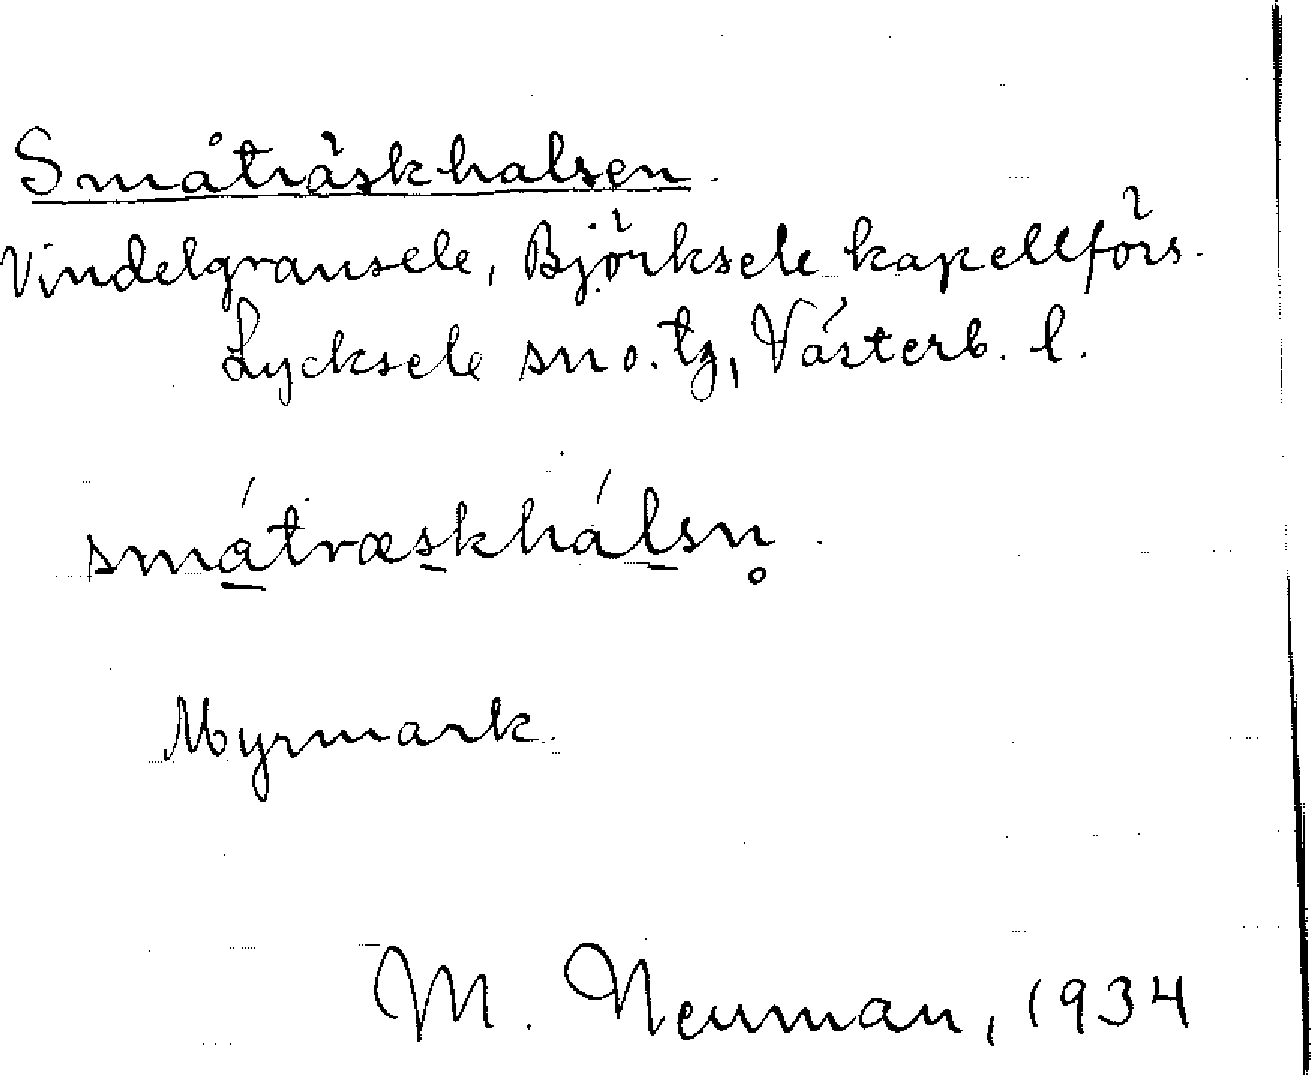 Småträskhalsen.
Vindelgransele, Björksele kapellförs.
Lycksele sn o. tg, Västerb. l.
smátræskhálsn̥.
Myrmark.
M. Neuman, 1934